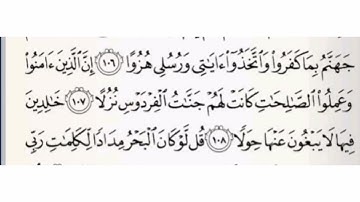 جَهَنَّمُ بِمَا كَفَرُوا۟ وَٱتَّخَذُوٓا۟ ءَايَٰتِى وَرُسُلِى هُزُوًا ١٠٦ إِنَّ ٱلَّذِينَ ءَامَنُوا۟
وَعَمِلُوا۟ ٱلصَّٰلِحَٰتِ كَانَتْ لَهُمْ جَنَّٰتُ ٱلْفِرْدَوْسِ نُزُلًا ١٠٧ خَٰلِدِينَ
فِيهَا لَا يَبْغُونَ عَنْهَا حِوَلًا ١٠٨ قُل لَّوْ كَانَ ٱلْبَحْرُ مِدَادًا لِّكَلِمَٰتِ رَبِّى